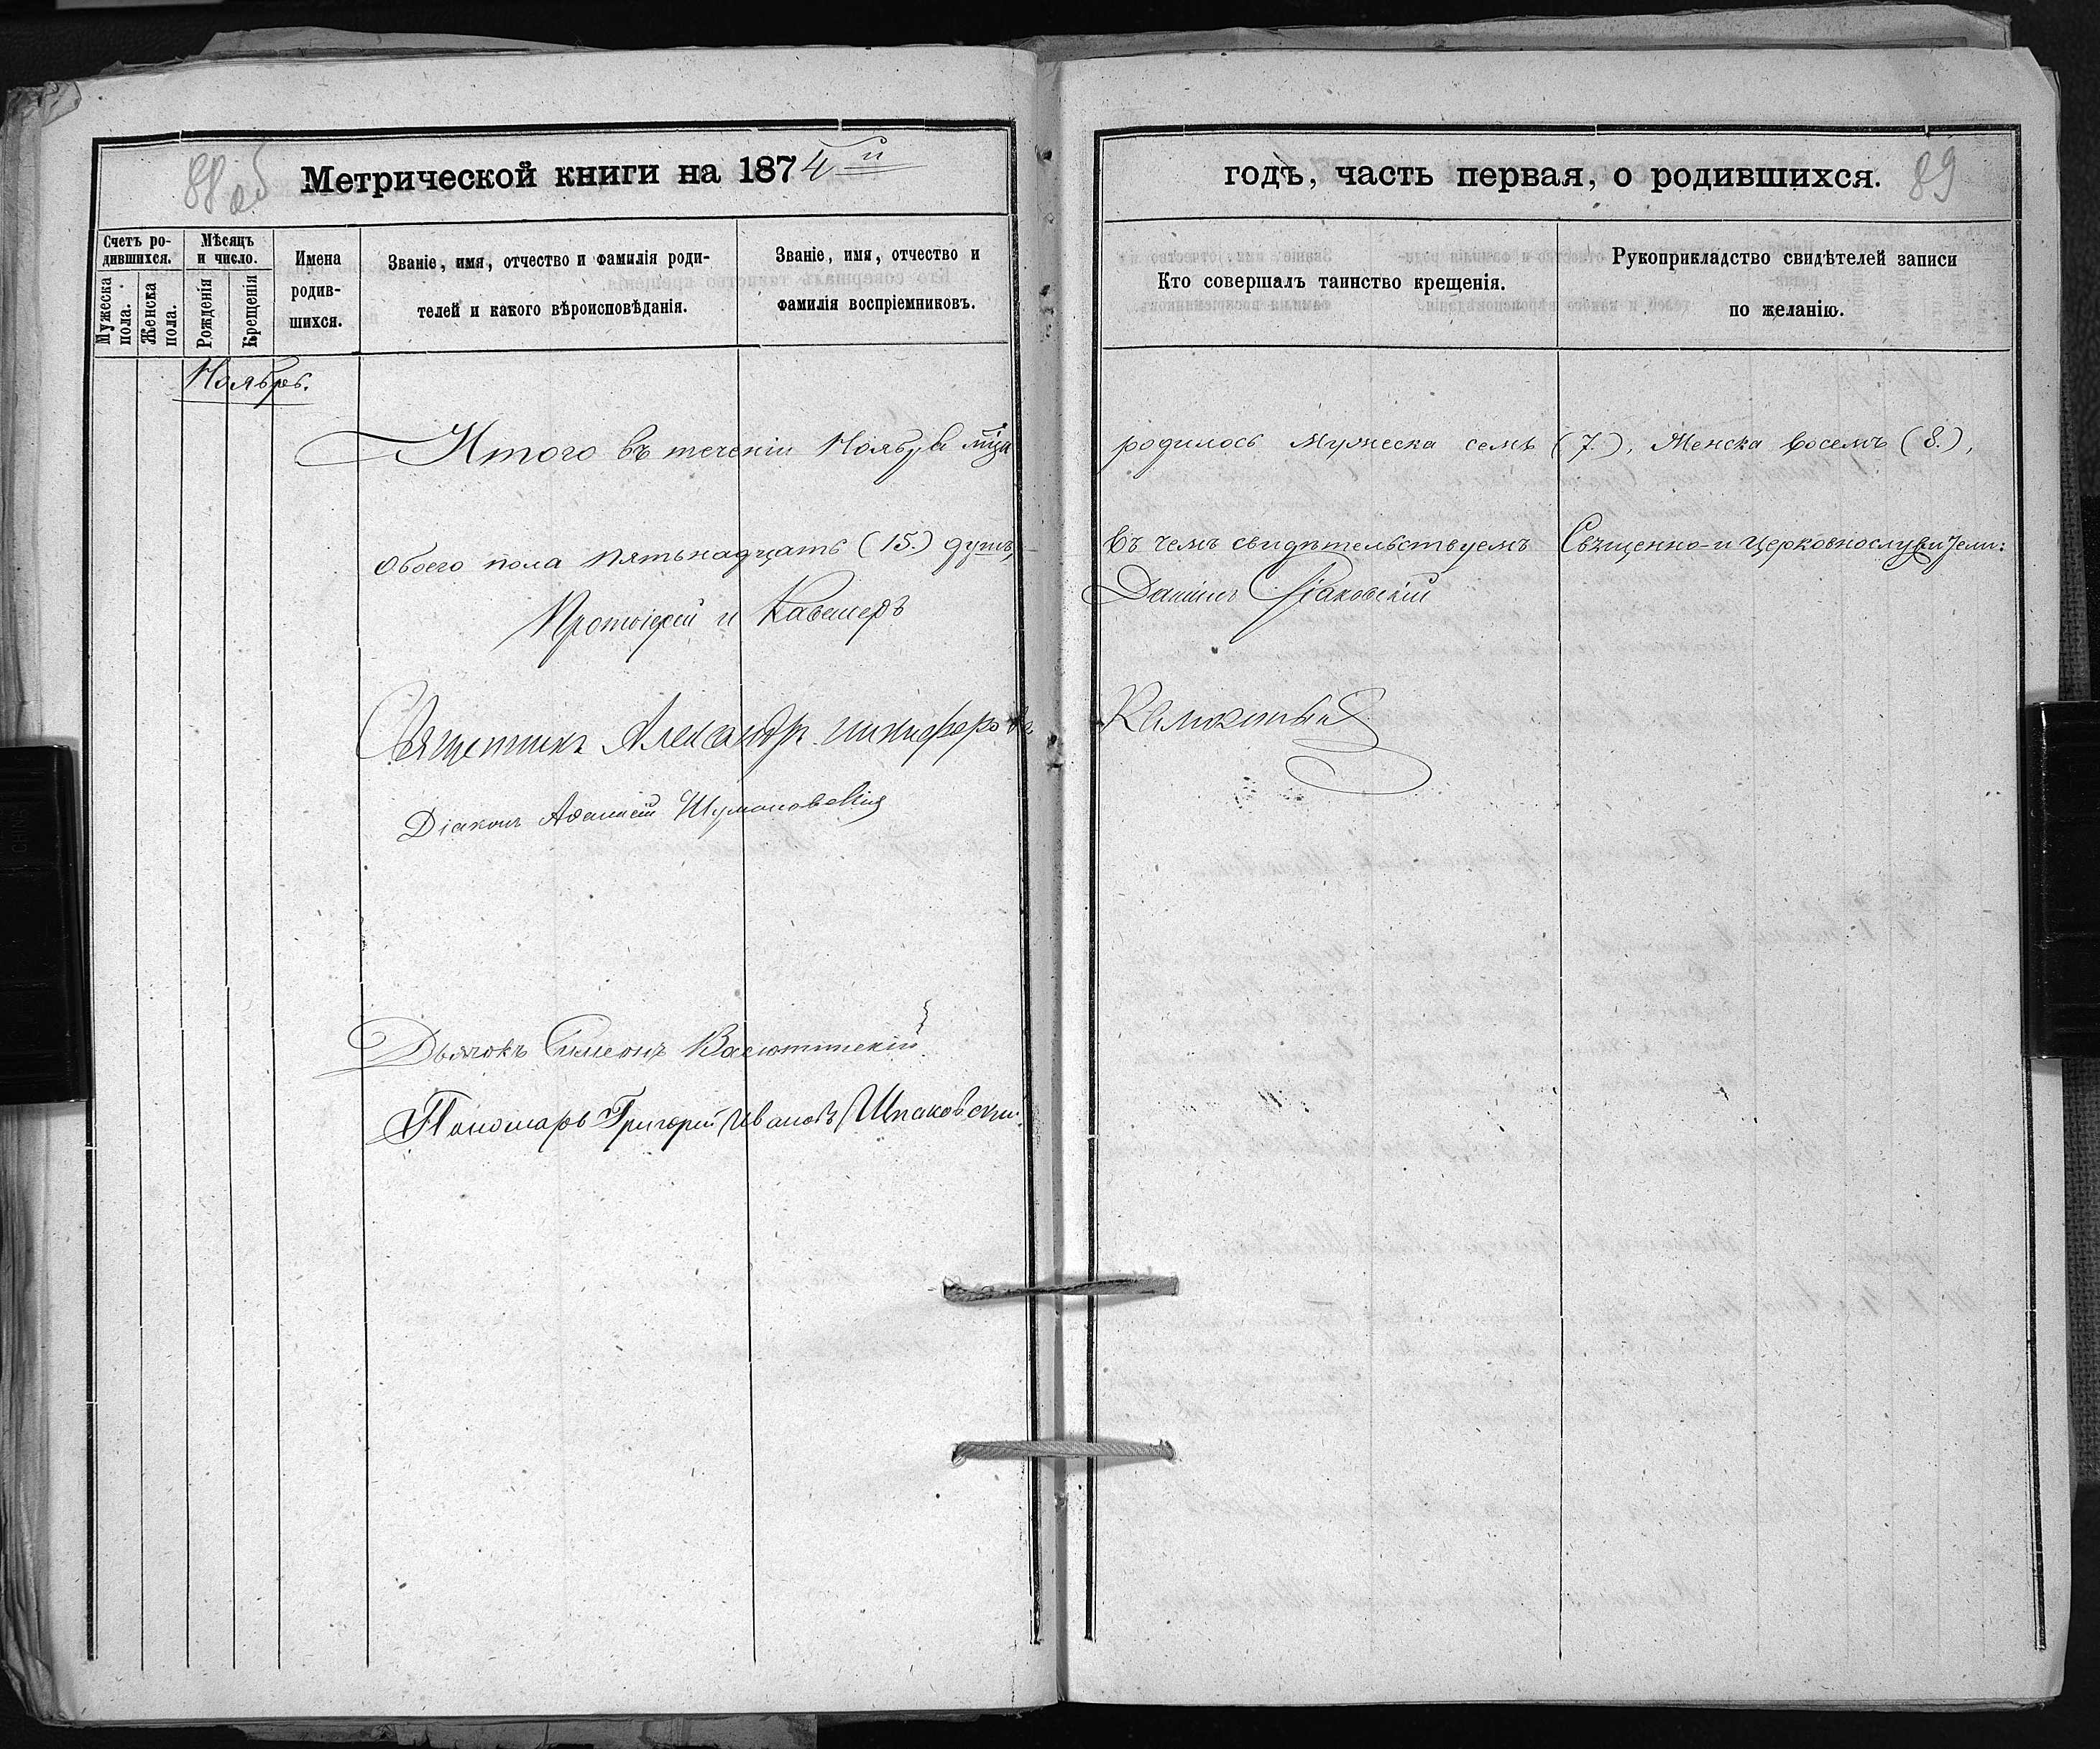 88 об
Метрической книги на 1874й
годъ, часть первая, о родившихся.
89
Счетъ ро-
дившихся.
Мужеска
пола.
Женска
пола.
Мѣсяцъ
и число.
Рожденія
Крещенія
Имена
родив-
шихся.
Званіе, имя, отчество и фамилія роди-
телей и какого вѣроисповѣданія.
Званіе, имя, отчество и
фамилія воспріемниковъ.
Кто совершалъ таинство крещенія.
Рукоприкладство свидѣтелей записи
по желанію.
Ноябрь.
Итого въ теченіи Ноября мца родилось Мужеска семь (7.), Женска восемь (8.),
обоего пола пятьнадцать (15.) душъ, въ чемъ свидѣтельствуемъ Священно- и Церковнослужители:
Протоіерей и Кавалеръ Даніилъ
Священникъ Александръ
Діаконъ Аѳанасій
Дьячокъ Симеонъ Васютинскій
Пономарь Григорій Ивановъ Шпаковскій